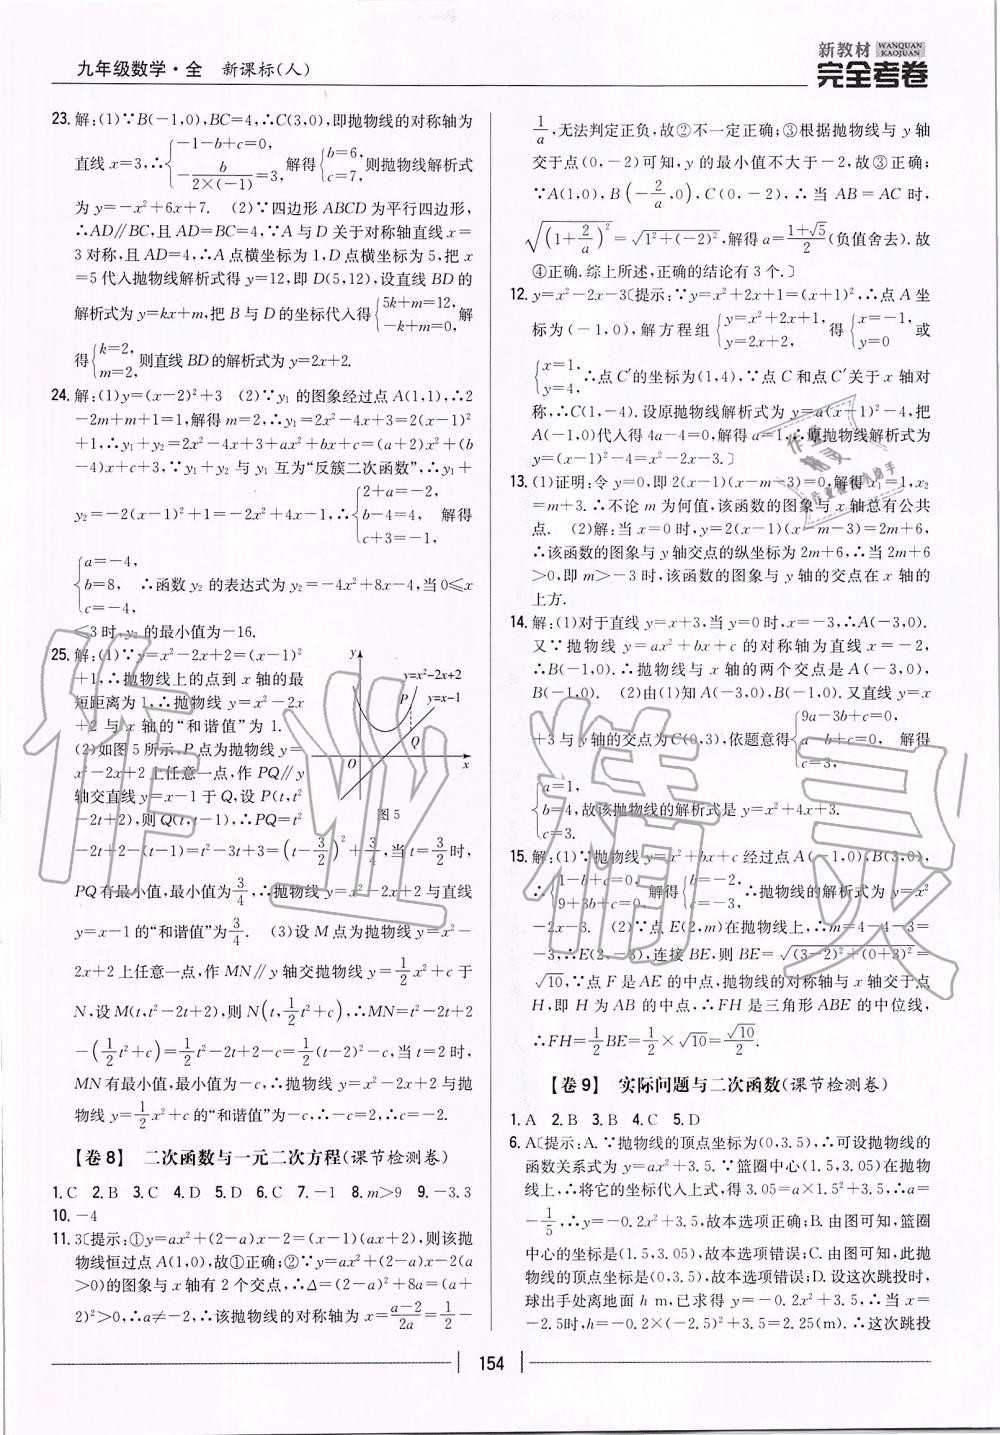 九年级数学·全 新课标(人)
新教材 WANQUAN KAOJUAN
完全考卷
23. 解:(1)∵B(-1,0),BC=4,∴C(3,0),即抛物线的对称轴为
直线 x=3,∴{-1-b+c=0, -b/(2×(-1))=3, 解得{b=6, c=7, 则抛物线解析式
为 y=-x²+6x+7. (2)∵四边形 ABCD 为平行四边形,
∴AD∥BC,且 AD=BC=4,∵A 与 D 关于对称轴直线 x=
3 对称,且 AD=4,∴A 点横坐标为 1,D 点横坐标为 5,把 x
=5 代入抛物线解析式得 y=12,即 D(5,12),设直线 BD 的
解析式为 y=kx+m,把 B 与 D 的坐标代入得{5k+m=12, -k+m=0, 解
得{k=2, m=2, 则直线 BD 的解析式为 y=2x+2.
24. 解:(1)y=(x-2)²+3 (2)∵y₁ 的图象经过点 A(1,1),∴2
-2m+m+1=1,解得 m=2,∴y₁=2x²-4x+3=2(x-1)²
+1,∴y₁+y₂=2x²-4x+3+ax²+bx+c=(a+2)x²+(b
-4)x+c+3,∵y₁+y₂ 与 y₁ 互为“反簇二次函数”,∴y₁+
y₂=-2(x-1)²+1=-2x²+4x-1,∴{2+a=-2, b-4=4, c+3=-1, 解得
{a=-4, b=8, c=-4, ∴函数 y₂ 的表达式为 y₂=-4x²+8x-4,当 0≤x
≤3 时,y₂ 的最小值为-16.
25. 解:(1)∵y=x²-2x+2=(x-1)²
+1,∴抛物线上的点到 x 轴的最
短距离为 1,∴抛物线 y=x²-2x
+2 与 x 轴的“和谐值”为 1.
(2)如图 5 所示,P 点为抛物线 y=
x²-2x+2 上任意一点,作 PQ∥y
轴交直线 y=x-1 于 Q,设 P(t,t²
-2t+2),则 Q(t,t-1),∴PQ=t²
-2t+2-(t-1)=t²-3t+3=(t-3/2)²+3/4,当 t=3/2 时,
PQ 有最小值,最小值为 3/4,∴抛物线 y=x²-2x+2 与直线
y=x-1 的“和谐值”为 3/4. (3)设 M 点为抛物线 y=x²-
2x+2 上任意一点,作 MN∥y 轴交抛物线 y=1/2x²+c 于
N,设 M(t,t²-2t+2),则 N(t,1/2t²+c),∴MN=t²-2t+2
-(1/2t²+c)=1/2t²-2t+2-c=1/2(t-2)²-c,当 t=2 时,
MN 有最小值,最小值为-c,∴抛物线 y=x²-2x+2 与抛
物线 y=1/2x²+c 的“和谐值”为-c,∴-c=2,∴c=-2.
y
y=x²-2x+2
P
y=x-1
Q
O
x
图 5
【卷 8】 二次函数与一元二次方程(课节检测卷)
1. C 2. B 3. C 4. D 5. D 6. C 7. -1 8. m>9 9. -3,3
10. -4
11. 3〔提示:①y=ax²+(2-a)x-2=(x-1)(ax+2),则该抛
物线恒过点 A(1,0),故①正确;②∵y=ax²+(2-a)x-2(a
>0)的图象与 x 轴有 2 个交点,∴Δ=(2-a)²+8a=(a+
2)²>0,∴a≠-2,∴该抛物线的对称轴为 x=(a-2)/2a=1/2-
1/a,无法判定正负,故②不一定正确;③根据抛物线与 y 轴
交于点(0,-2)可知,y 的最小值不大于-2,故③正确;
∵A(1,0),B(-2/a,0),C(0,-2),∴当 AB=AC 时,
√((1+2/a)²)=√(1²+(-2)²),解得 a=(1+√5)/2(负值舍去).故
④正确.综上所述,正确的结论有 3 个.〕
12. y=x²-2x-3〔提示:∵y=x²+2x+1=(x+1)²,∴点 A 坐
标为(-1,0),解方程组{y=x²+2x+1, y=2x+2, 得{x=-1, y=0 或
{x=1, y=4, ∴点 C′的坐标为(1,4),∵点 C 和点 C′关于 x 轴对
称,∴C(1,-4).设原抛物线解析式为 y=a(x-1)²-4,把
A(-1,0)代入得 4a-4=0,解得 a=1,∴原抛物线解析式为
y=(x-1)²-4=x²-2x-3.〕
13. (1)证明:令 y=0,即 2(x-1)(x-m-3)=0,解得 x₁=1,x₂
=m+3.∴不论 m 为何值,该函数的图象与 x 轴总有公共
点. (2)解:当 x=0 时,y=2(x-1)(x-m-3)=2m+6,
∴该函数的图象与 y 轴交点的纵坐标为 2m+6,∴当 2m+6
>0,即 m>-3 时,该函数的图象与 y 轴的交点在 x 轴的
上方.
14. 解:(1)对于直线 y=x+3,当 y=0 时,x=-3,∴A(-3,0).
又∵抛物线 y=ax²+bx+c 的对称轴为直线 x=-2,
∴B(-1,0).∴抛物线与 x 轴的两个交点是 A(-3,0),
B(-1,0). (2)由(1)知 A(-3,0),B(-1,0).又直线 y=x
+3 与 y 轴的交点为 C(0,3),依题意得{9a-3b+c=0, a-b+c=0, c=3, 解得
{a=1, b=4, c=3. 故该抛物线的解析式是 y=x²+4x+3.
15. 解:(1)∵抛物线 y=x²+bx+c 经过点 A(-1,0),B(3,0),
∴{1-b+c=0, 9+3b+c=0, 解得{b=-2, c=-3, ∴抛物线的解析式为 y=x²
-2x-3. (2)∵点 E(2,m)在抛物线上,∴m=4-4-3=
-3,∴E(2,-3),连接 BE,则 BE=√((3-2)²+(0+3)²)=
√10,∵点 F 是 AE 的中点,抛物线的对称轴与 x 轴交于点
H,即 H 为 AB 的中点,∴FH 是三角形 ABE 的中位线,
∴FH=1/2BE=1/2×√10=√10/2.
【卷 9】 实际问题与二次函数(课节检测卷)
1. A 2. B 3. B 4. C 5. D
6. A〔提示:A.∵抛物线的顶点坐标为(0,3.5),∴可设抛物线的
函数关系式为 y=ax²+3.5.∵篮圈中心(1.5,3.05)在抛物
线上,∴将它的坐标代入上式,得 3.05=a×1.5²+3.5,∴a=
-1/5,∴y=-0.2x²+3.5,故本选项正确;B.由图可知,篮圈
中心的坐标是(1.5,3.05),故本选项错误;C.由图可知,此抛
物线的顶点坐标是(0,3.5),故本选项错误;D.设这次跳投时,
球出手处离地面 h m,已求得 y=-0.2x²+3.5,∴当 x=
-2.5时,h=-0.2×(-2.5)²+3.5=2.25(m).∴这次跳投
154
作业精灵